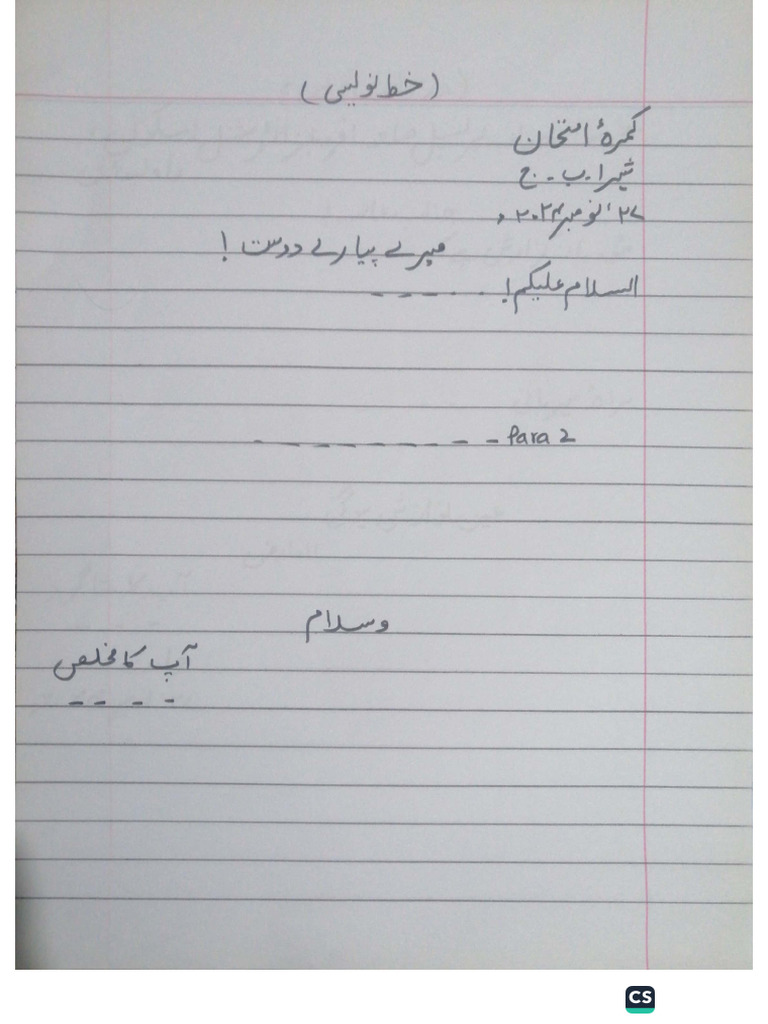 (خط نویسی)
کمرۂ امتحان
شہر ا۔ب۔ج
۲۷ نومبر ۲۰۲۴ء
میرے پیارے دوست!
السلام علیکم! - - - - -
Para 2 - - - - - - - - -
وسلام
آپ کا مخلص
- - - -
CS